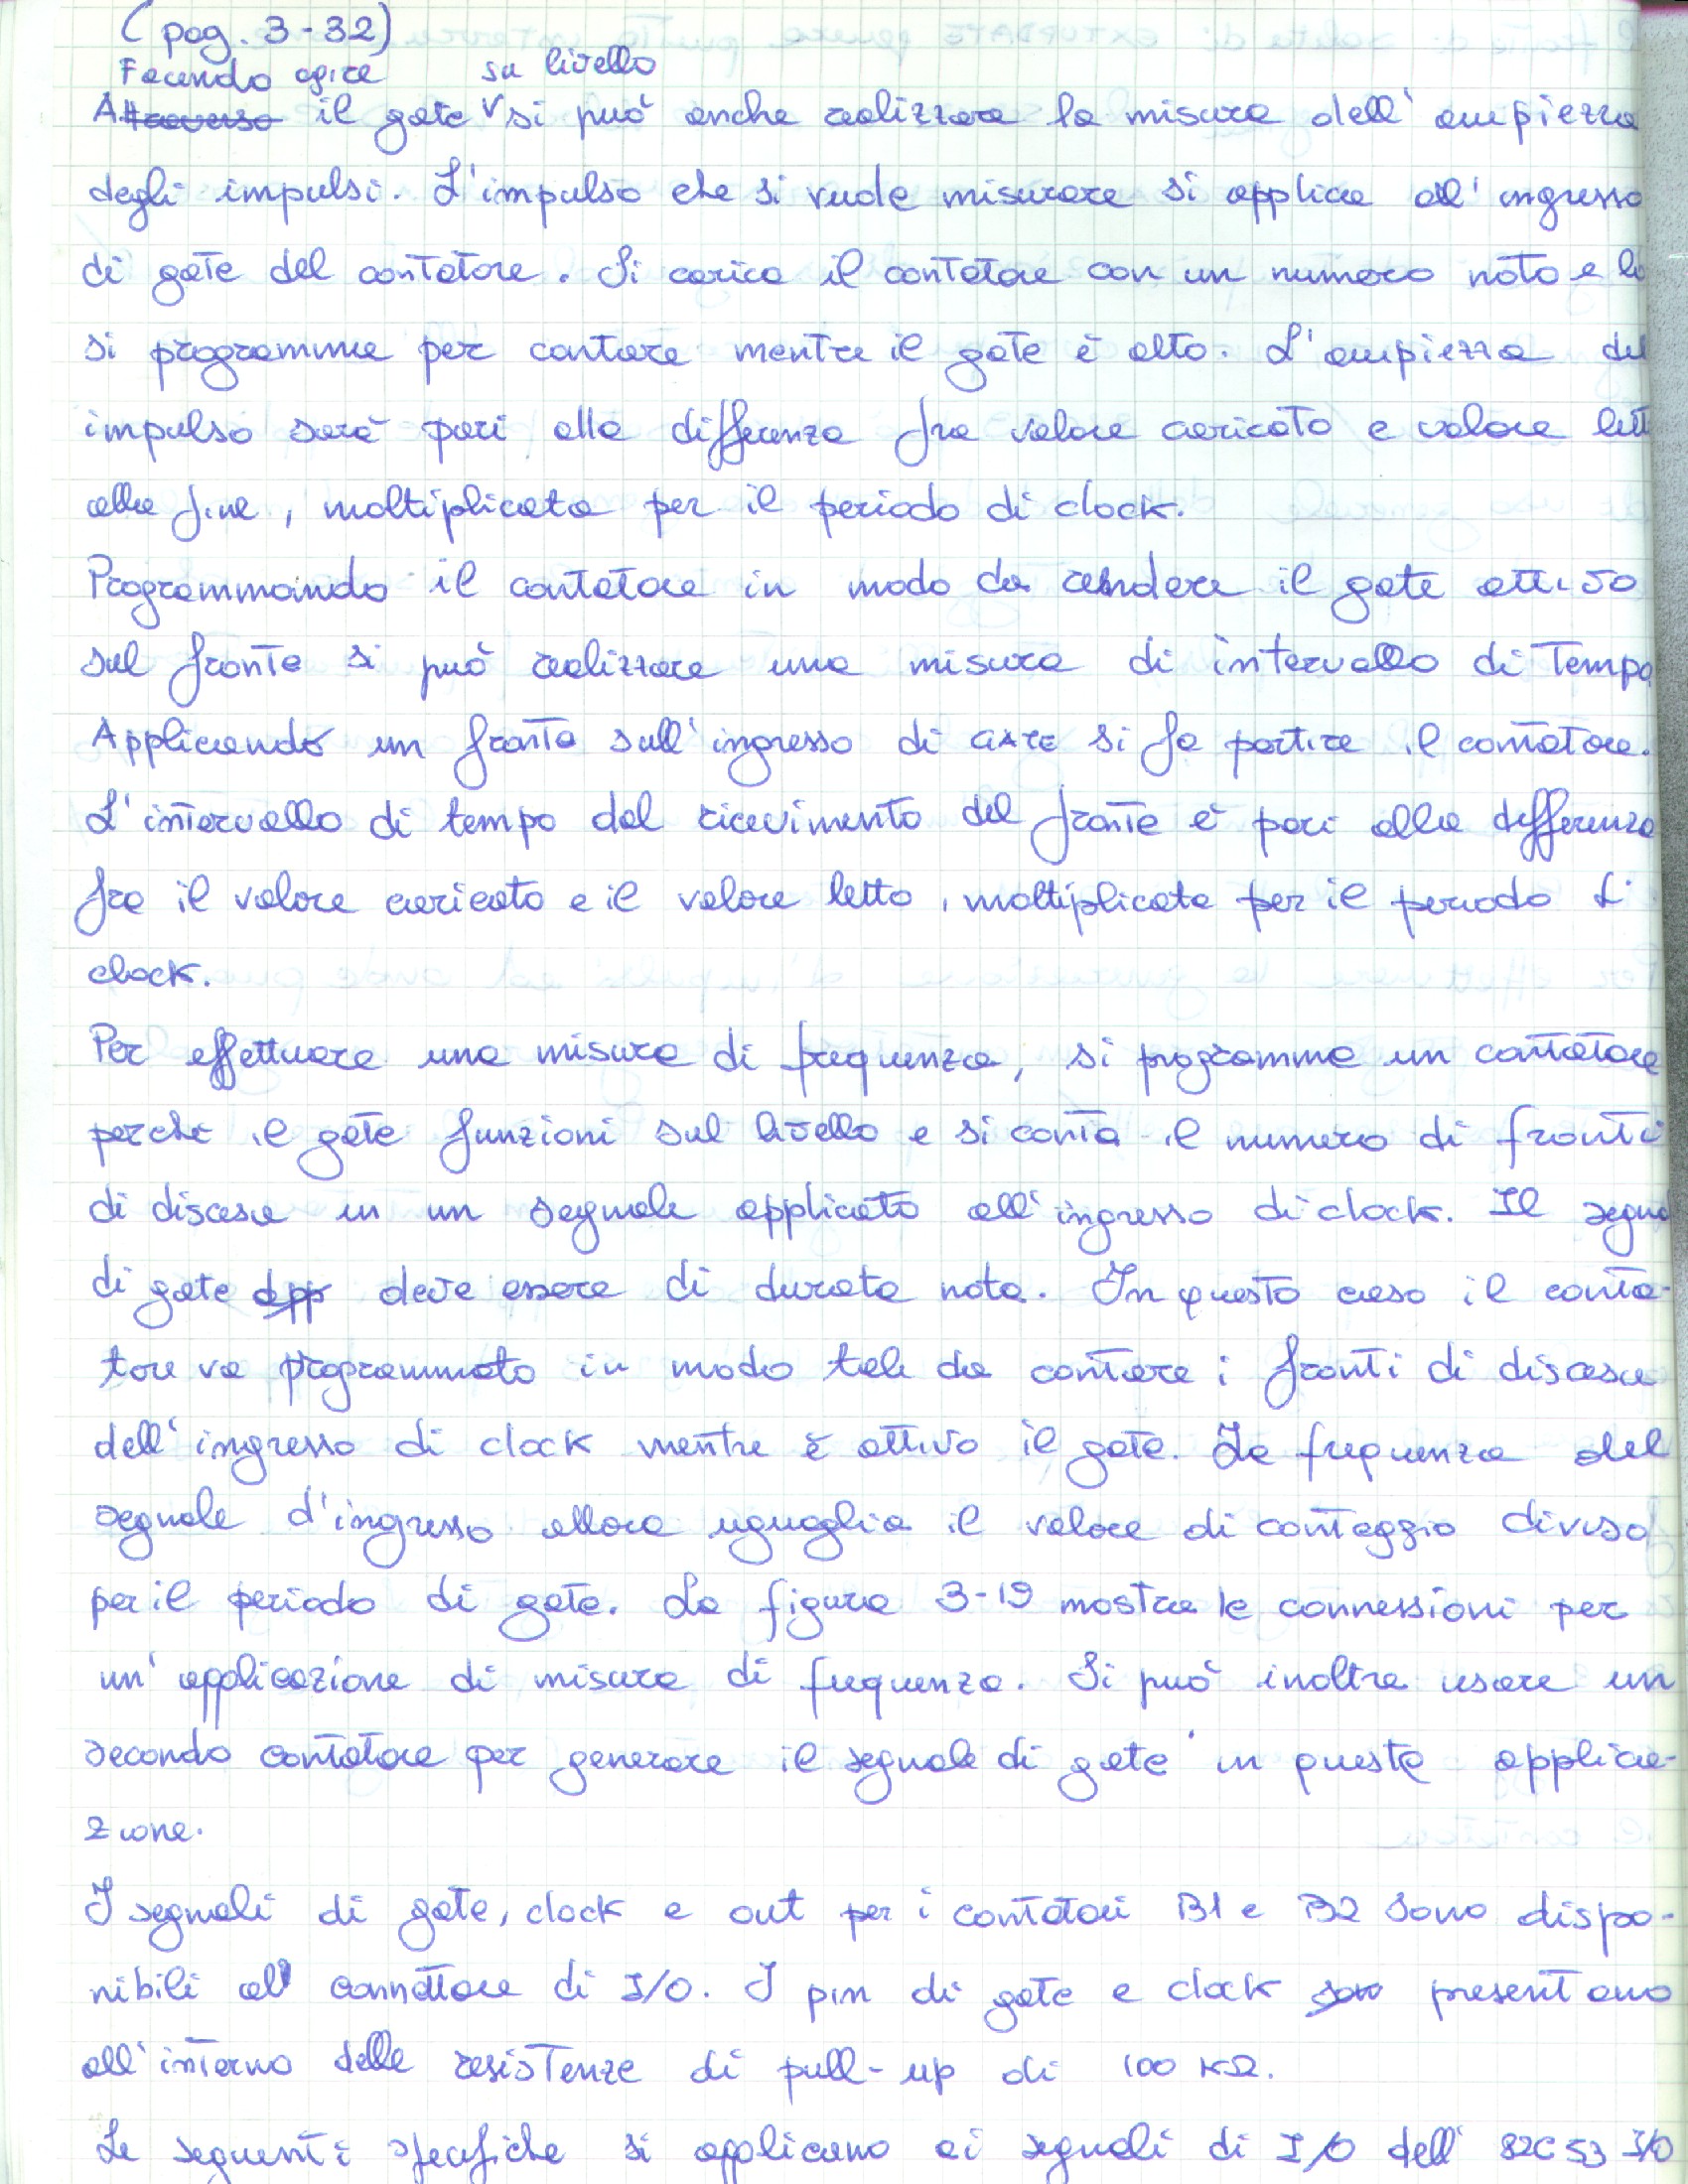 (pag. 3-32)
Facendo agire su livello
Attraverso il gate si può anche realizzare la misura dell'ampiezza
degli impulsi. L'impulso che si vuole misurare si applica all'ingresso
di gate del contatore. Si carica il contatore con un numero noto e lo
si programma per contare mentre il gate è alto. L'ampiezza del
impulso sarà pari alla differenza fra valore caricato e valore lett
alla fine, moltiplicata per il periodo di clock.
Programmando il contatore in modo da rendere il gate attivo
sul fronte si può realizzare una misura di intervallo di tempo
Applicando un fronte sull'ingresso di GATE si fa partire il contatore.
L'intervallo di tempo dal ricevimento del fronte è pari alla differenza
fra il valore caricato e il valore letto, moltiplicata per il periodo di
clock.
Per effettuare una misura di frequenza, si programma un contatore
perchè il gate funzioni sul livello e si conta il numero di fronti
di discesa in un segnale applicato all'ingresso di clock. Il segna
di gate app deve essere di durata nota. In questo caso il conta-
tore va programmato in modo tale da contare i fronti di discesa
dell'ingresso di clock mentre è attivo il gate. La frequenza del
segnale d'ingresso allora uguaglia il valore di conteggio diviso
per il periodo di gate. La figura 3-19 mostra le connessioni per
un'applicazione di misura di frequenza. Si può inoltre usare un
secondo contatore per generare il segnale di gate in questa applica-
zione.
I segnali di gate, clock e out per i contatori B1 e B2 sono dispo-
nibili al connettore di I/O. I pin di gate e clock son presentano
all'interno delle resistenze di pull-up di 100 KΩ.
Le seguenti specifiche si applicano ai segnali di I/O dell'82C53 I/O